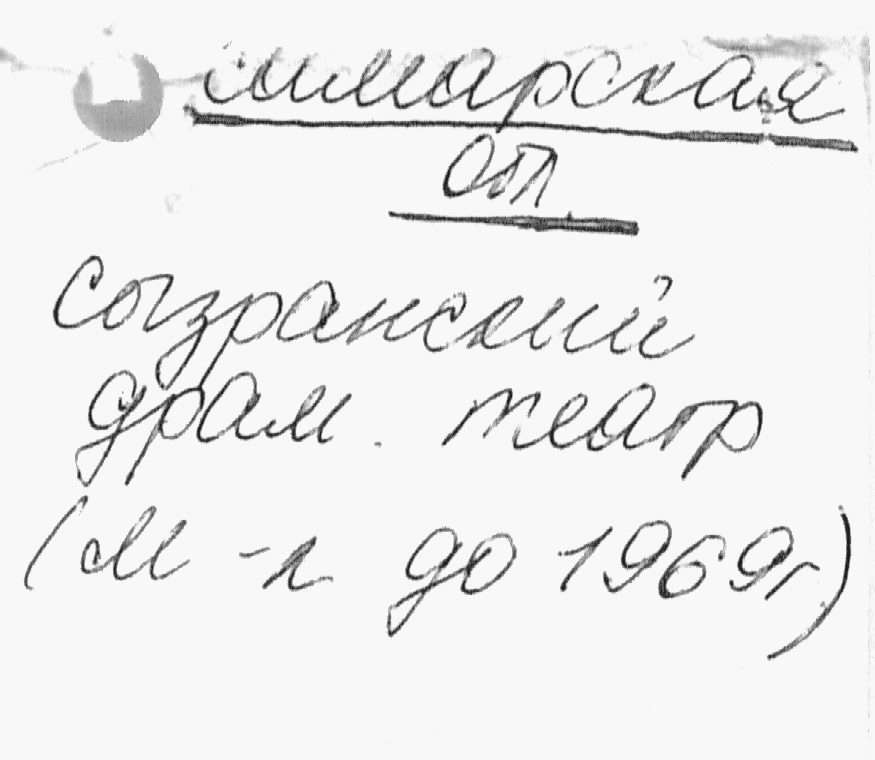 самарская
сызранский
драм. театр
(М-л до 1969г)